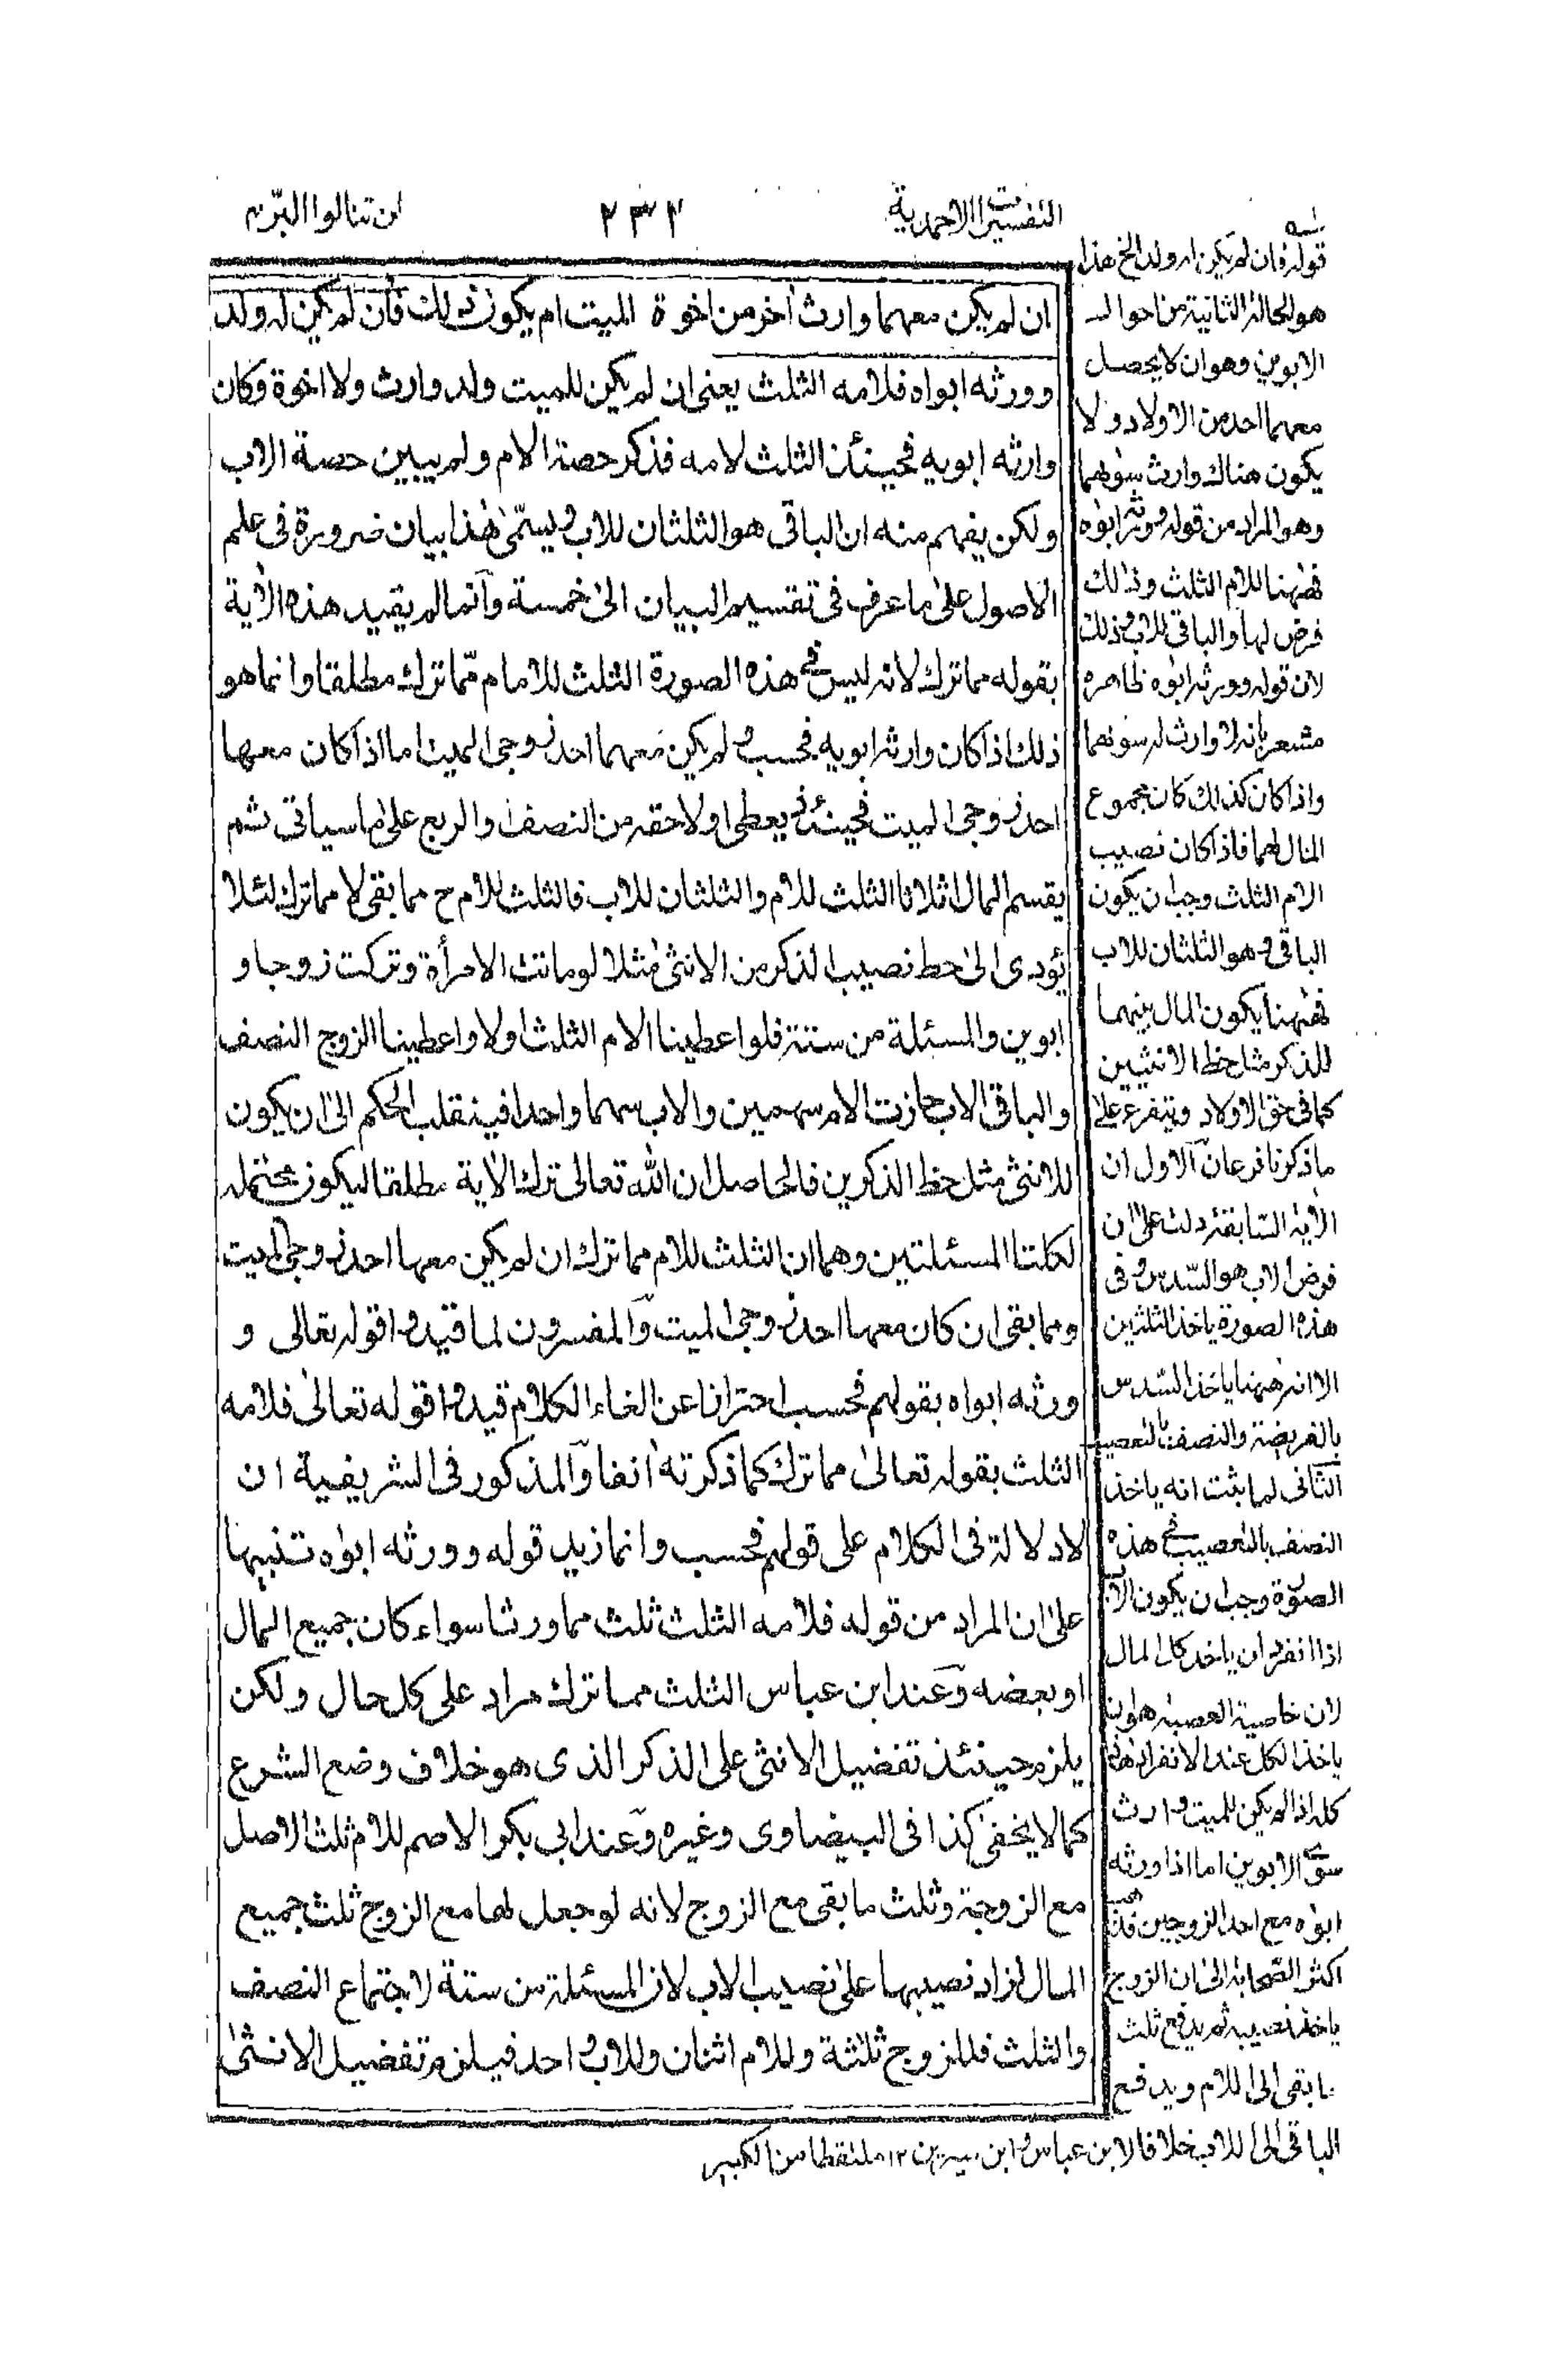 التفسيرات الاحمدية
٢٣٤
لن تنالوا البر ٤
ان لم يكن معهما وارث اخر من اخوة الميت ام يكون كذلك فان لم يكن له ولد
وورثه ابواه فلامه الثلث يعنى ان لم يكن للميت ولد وارث ولا اخوة وكان
وارثه ابويه فحينئذ الثلث لامه فذكر حصة الام ولم يبين حصة الاب
ولكن يفهم منه ان الباقى هو الثلثان للاب ويسمى هذا بيان ضرورة فى علم
الاصول على ما عرف فى تقسيم البيان الى خمسة وانما لم يقيد هذه الاية
بقوله مما ترك لانه ليس فى هذه الصورة الثلث للام مما ترك مطلقا وانما هو
ذلك اذا كان وارثه ابويه فحسب ولم يكن معهما احد زوجى الميت اما اذا كان معهما
احد زوجى الميت فحينئذ يعطى اولا حقه من النصف والربع على ما سياتى ثم
يقسم المال اثلاثا الثلث للام والثلثان للاب فالثلث للام ح مما بقى لا مما ترك لئلا
يؤدى الى حط نصيب الذكر من الانثى مثلا لو ماتت الامرأة وتركت زوجا و
ابوين والمسئلة من ستة فلو اعطينا الام الثلث اولا واعطينا الزوج النصف
والباقى الاب حازت الام سهمين والاب سهما واحدا فينقلب الحكم الى ان يكون
للانثى مثل حظ الذكرين فالحاصل ان الله تعالى ترك الاية مطلقا ليكون محتمله
لكلتا المسئلتين وهما ان الثلث للام مما ترك ان لم يكن معهما احد زوجى الميت
ومما بقى ان كان معهما احد زوجى الميت والمفسرون لما قيدوا قوله تعالى و
ورثه ابواه بقولهم فحسب احترازا عن الغاء الكلام قيدوا قوله تعالى فلامه
الثلث بقوله تعالى مما ترك كما ذكرته انفا والمذكور فى الشريفية ان
لا دلالة فى الكلام على قولهم فحسب وانما زيد قوله وورثه ابواه تنبيها
على ان المراد من قوله فلامه الثلث ثلث مما ورثا سواء كان جميع المال
او بعضه وعند ابن عباس الثلث مما ترك مراد على كل حال ولكن
يلزم حينئذ تفضيل الانثى على الذكر الذى هو خلاف وضع الشرع
كما لا يخفى كذا فى البيضاوى وغيره وعند ابى بكر الاصم للام ثلث الاصل
مع الزوجة وثلث ما بقى مع الزوج لانه لو جعل لها مع الزوج ثلث جميع
المال لزاد نصيبها على نصيب الاب لان المسئلة من ستة لاجتماع النصف
والثلث فللزوج ثلثة وللام اثنان وللاب واحد فيلزم تفضيل الانثى
قوله فان لم يكن له ولد الخ هذا
هو الحالة الثانية من احوال
الابوين وهو ان لا يحصل
معهما احد من الاولاد ولا
يكون هناك وارث سواهما
وهو المراد من قوله وورثه ابواه
فههنا للام الثلث وذلك
فرض لها والباقى للاب وذلك
لان قوله وورثه ابواه ظاهره
مشعر بانه لا وارث له سواهما
واذا كان كذلك كان مجموع
المال لهما فاذا كان نصيب
الام الثلث وجب ان يكون
الباقى وهو الثلثان للاب
فههنا يكون المال بينهما
للذكر مثل حظ الانثيين
كما فى حق الاولاد ويتفرع على
ما ذكرنا فرعان الاول ان
الاية السابقة دلت على ان
فرض الاب هو السدس وفى
هذه الصورة ياخذ الثلثين
الا انه ههنا ياخذ السدس
بالفريضة والنصف بالتعصيب
الثانى لما ثبت انه ياخذ
النصف بالتعصيب فى هذه
الصورة وجب ان يكون الاب
اذا انفرد ان ياخذ كل المال
لان خاصية العصبة هو ان
ياخذ الكل عند الانفراد هذا
كله اذا لم يكن للميت وارث
سوى الابوين اما اذا ورثه
ابواه مع احد الزوجين فذهب
اكثر الصحابة الى ان الزوج
ياخذ نصيبه ثم يدفع ثلث
ما بقى الى الام ويدفع
الباقى الى الاب خلافا لابن عباس وابن سيرين ١٢ ملتقطا من الكبير